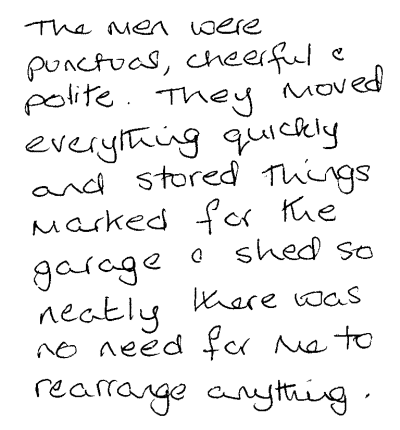 The men were
punctual, cheerful &
polite. They moved
everything quickly
and stored things
marked for the
garage & shed so
neatly there was
no need for me to
rearrange anything.